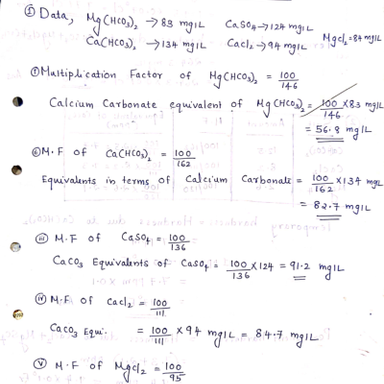 ① Data, Mg(HCO3)2 → 83 mg1L CaSO4 → 124 mg1L
Ca(HCO3)2 → 134 mg1L CaCl2 → 94 mg1L MgCl2 = 84 mg1L
① Multiplication Factor of Mg(HCO3)2 = 100/146
Calcium Carbonate equivalent of Mg(HCO3)2 = 100/146 × 83 mg1L
= 56.8 mg1L
② M.F of Ca(HCO3)2 = 100/162
Equivalents in terms of Calcium Carbonate = 100/162 × 134 mg1L
= 82.7 mg1L
iii M.F of CaSO4 = 100/136
CaCO3 Equivalents of CaSO4 = 100/136 × 124 = 91.2 mg1L
iv M.F of CaCl2 = 100/111
CaCO3 Equi. = 100/111 × 94 mg1L = 84.7 mg1L
v M.F of MgCl2 = 100/95